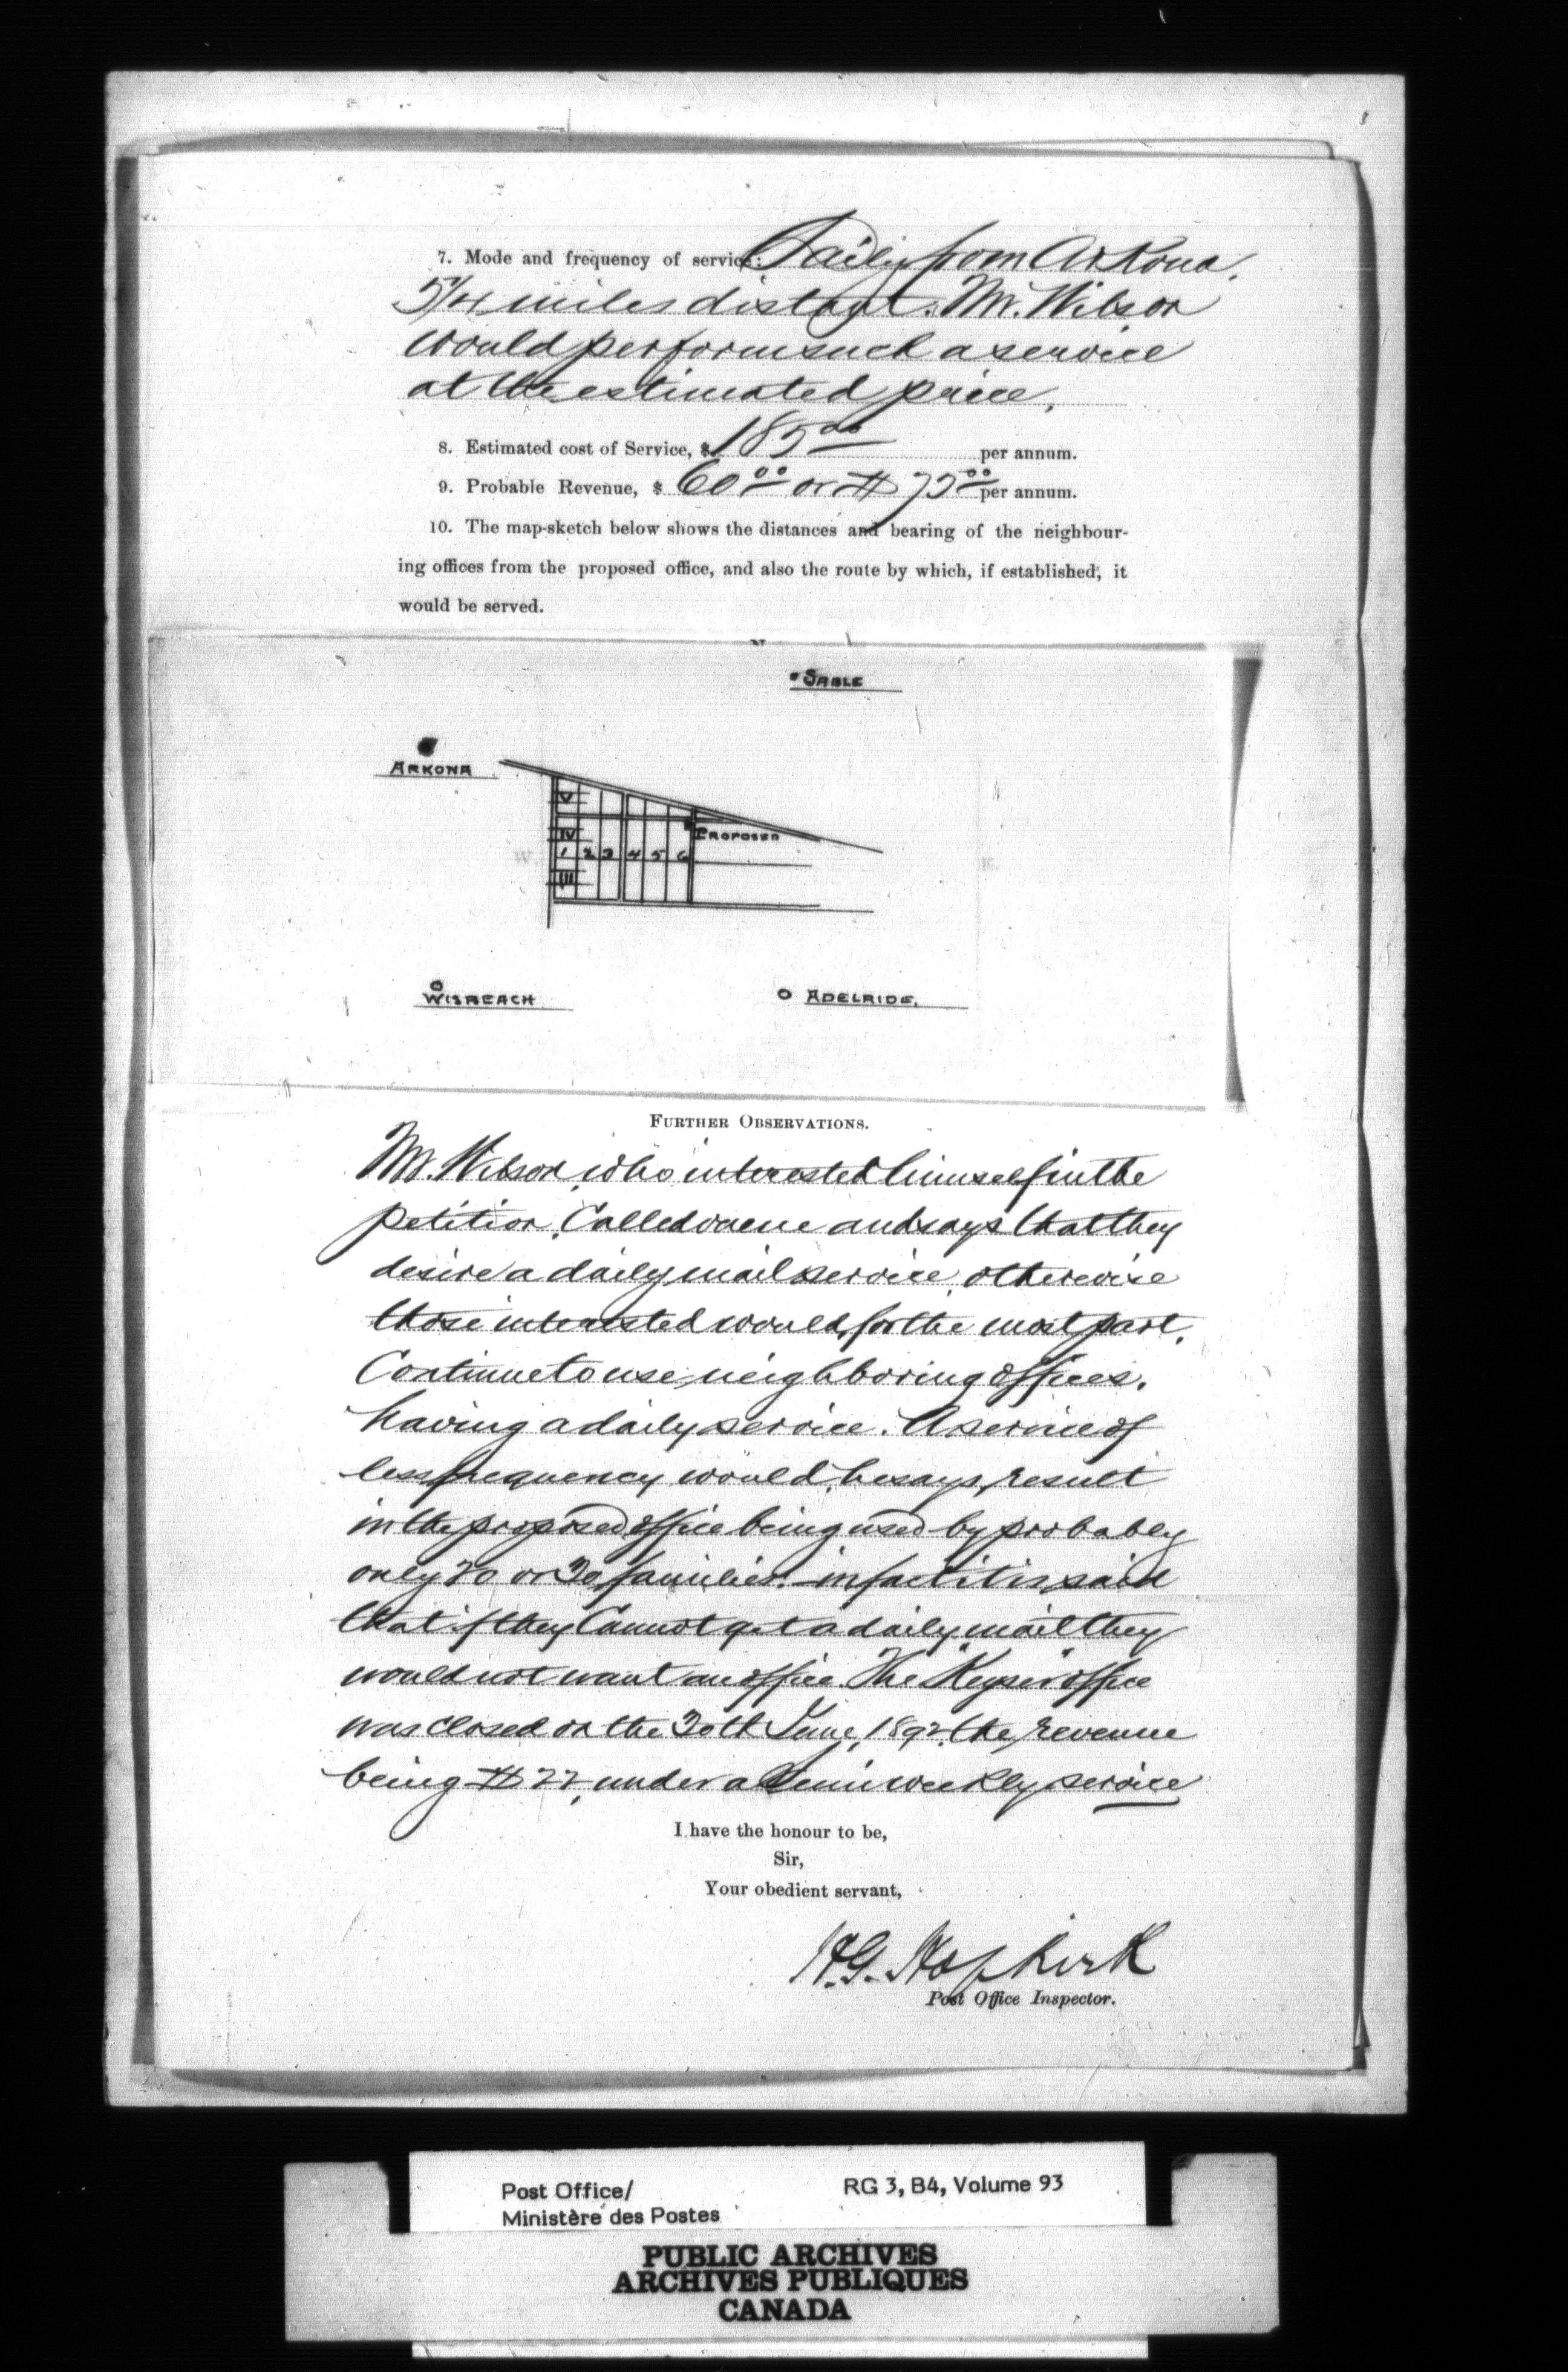 7. Mode and frequency of service: Daily from Arkona,
5¼ miles distant. Mr. Wilson
would perform such a service
at the estimated price.
8. Estimated cost of Service, $ 185.00 per annum.
9. Probable Revenue, $ 60.00 or $75.00 per annum.
10. The map-sketch below shows the distances and bearing of the neighbour-
ing offices from the proposed office, and also the route by which, if established, it
would be served.
N
SABLE
ARKONA
V
IV
PROPOSED
1 2 3 4 5 6
W.
E.
III
WISBEACH
ADELAIDE.
FURTHER OBSERVATIONS.
Mr. Wilson, who interested himself in the
petition, Called on me and says that they
desire a daily mail service, otherwise
those interested would, for the most part,
Continue to use neighboring offices,
having a daily service. A service of
less frequency would, he says, result
in the proposed office being used by probably
only 20 or 30 families: in fact it is said
that if they Cannot get a daily mail they
would not want an office. The "Keyser" office
was closed on the 30th June, 1892, the revenue
being $22, under a Semi weekly service
I have the honour to be,
Sir,
Your obedient servant,
H.G. Hopkirk
Post Office Inspector.
Post Office/ RG 3, B4, Volume 93
Ministère des Postes
PUBLIC ARCHIVES
ARCHIVES PUBLIQUES
CANADA